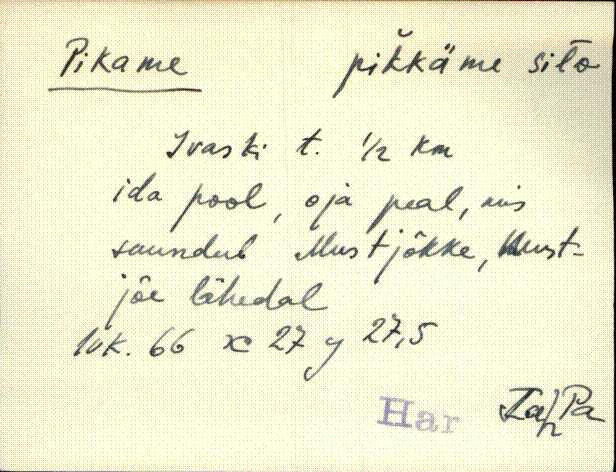 Pikame pik̆käme sĭlo
Ivaski t. 1/2 km
ida pool, oja peal, mis
suundub Mustjõkke, Must-
jõe lähedal
1vk. 66 x 27 y 27,5
Har